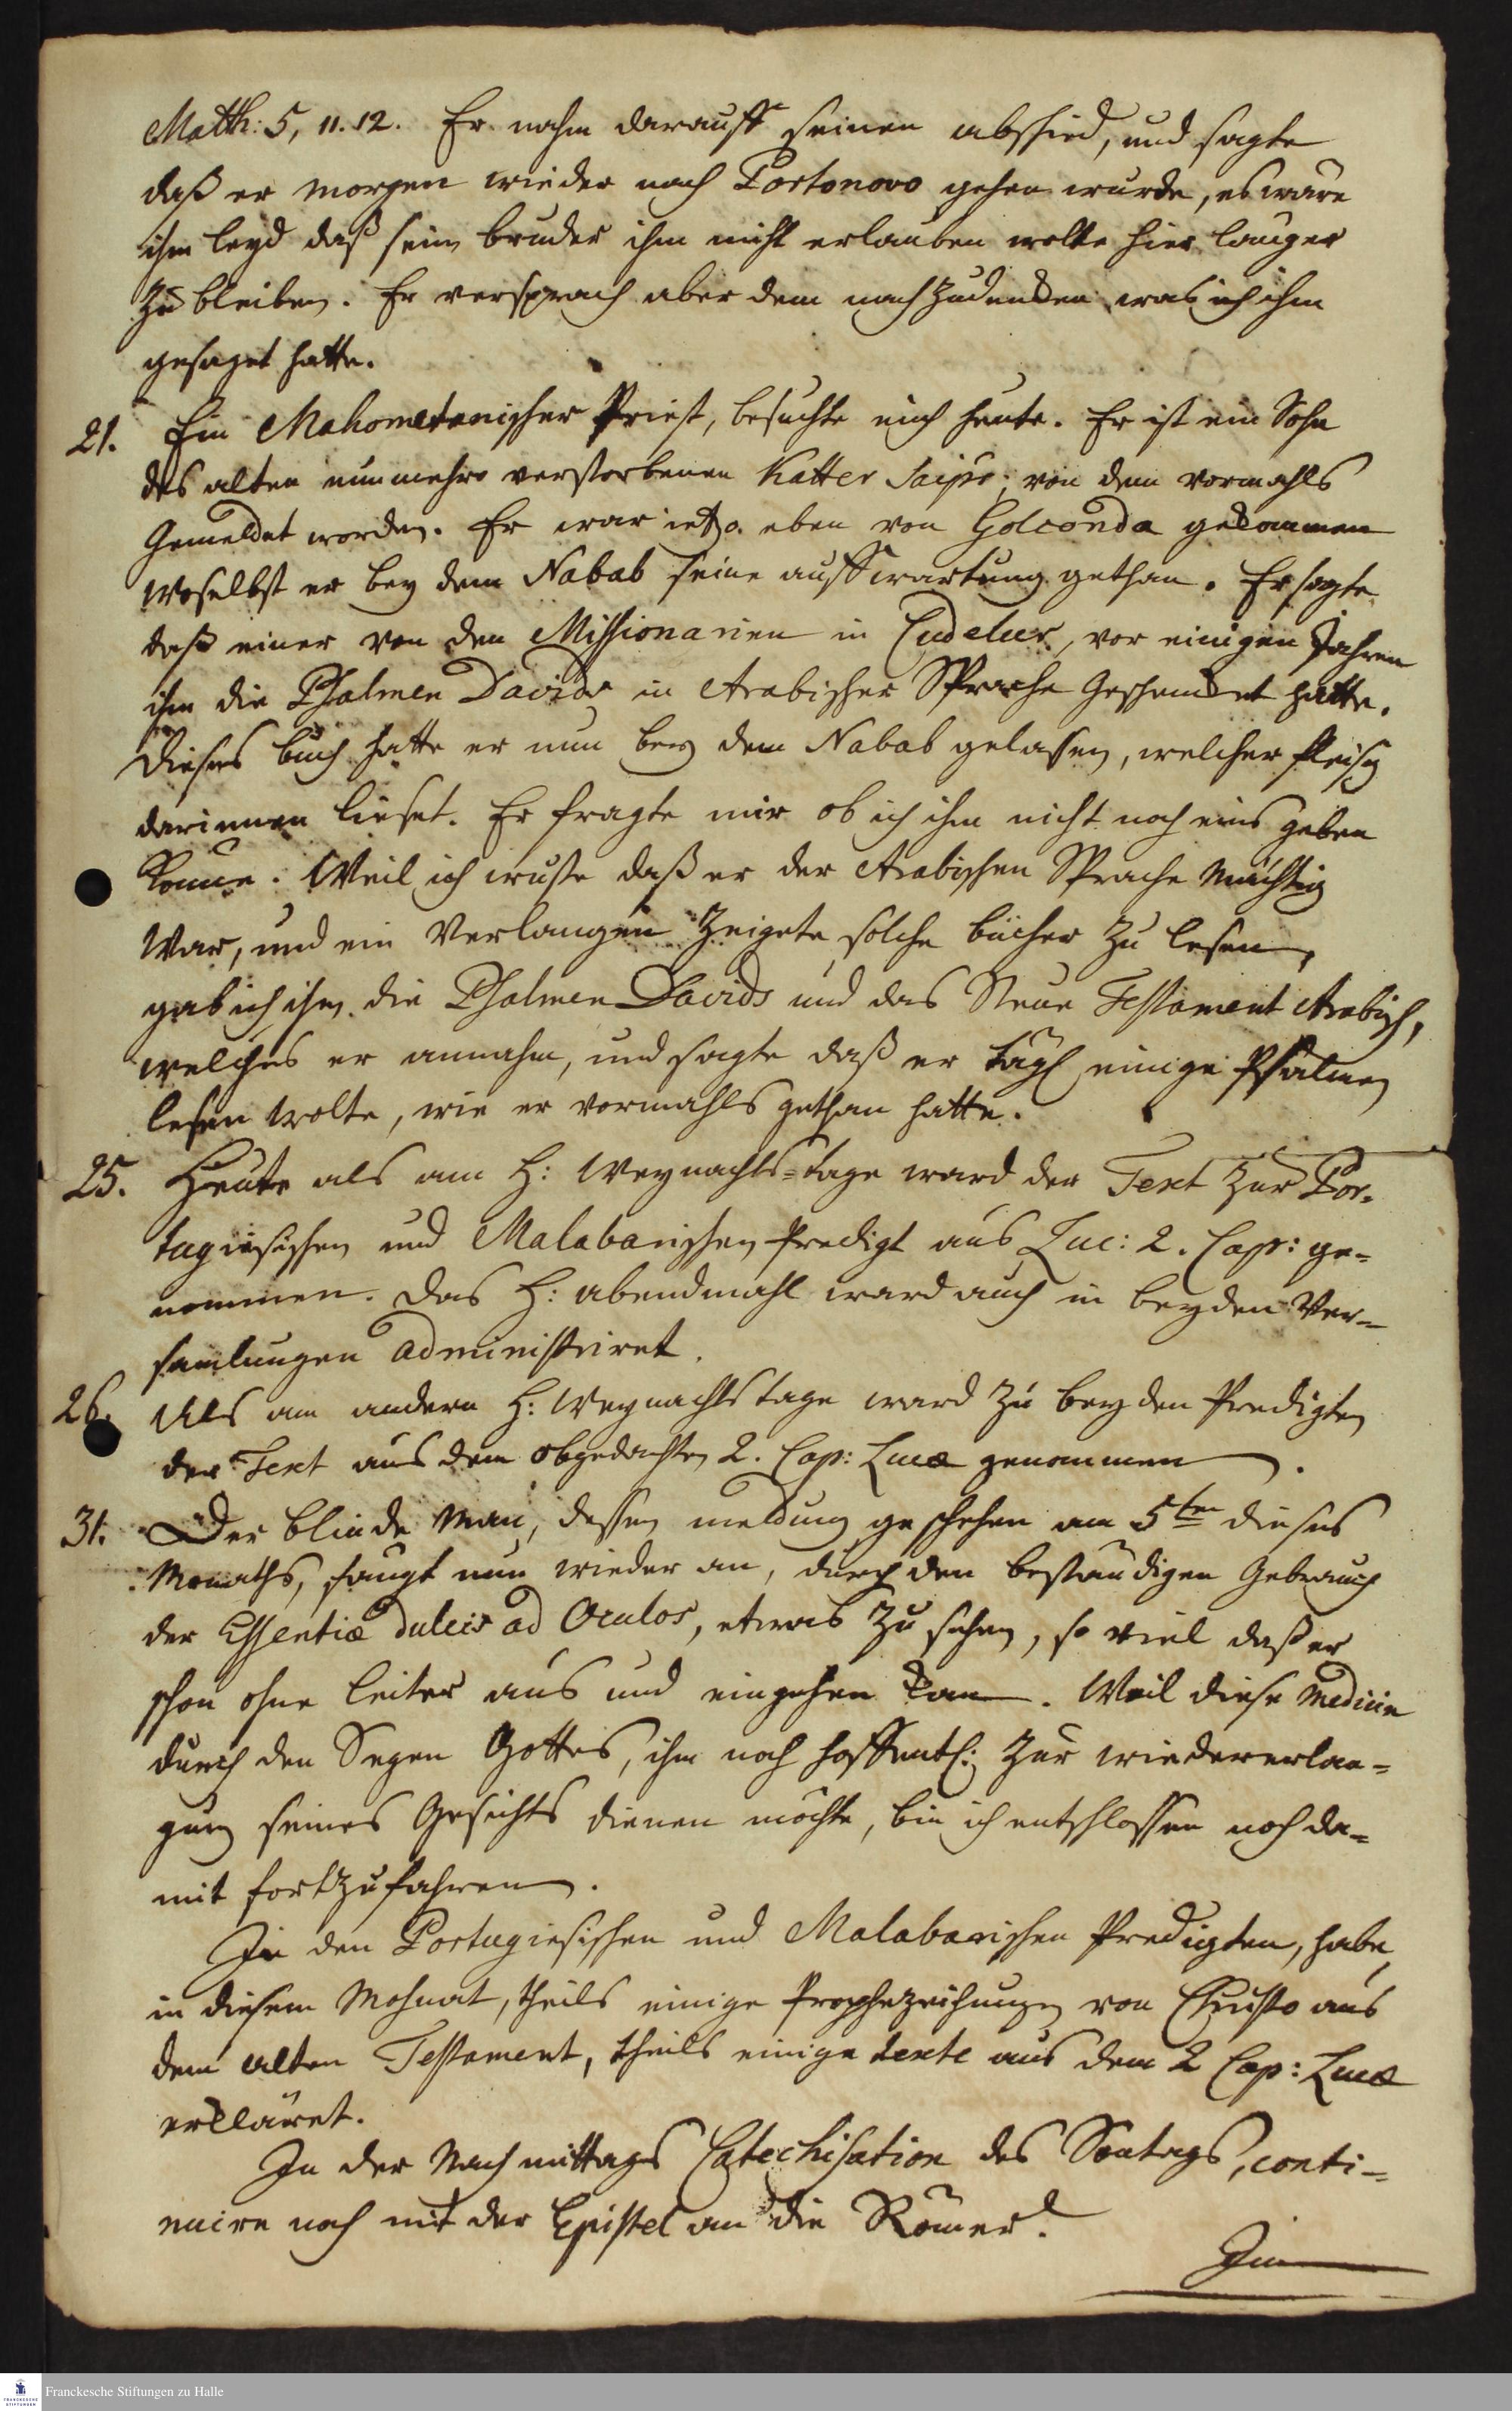 Matth: 5, 11. 12. Er nahm darauff seinen abschied, und sagte
daß er morgen wieder nach Portonovo gehen wurde, es ware
ihm leyd daß sein bruder ihm nicht erlauben wolte hier langer
zu bleiben. Er versprach aber dem nachzudencken was ich ihm
gesaget hatte.
21. Ein Mahometanischer Priest, besuchte mich heute. Er ist ein Sohn
des alten nunmehro verstorbenen Katter Saips, von dem vormahls
Gemeldet worden. Er war ietzo eben von Golconda gekommen
woselbst er bey dem Nabab seine auffwartung gethan. Er sagte
daß einer von den Missionarien in Cudelur, vor einigen Jahren
ihm die Psalmen Davids in Arabischer Sprache Geschencket hatte.
Dieses buch hatte er nun bey dem Nabab gelassen, welcher fleisig
darinnen lieset. Er fragte mir ob ich ihm nicht noch eins geben
konne. Weil ich wuste daß er der Arabischen Sprache mächtig
War, und ein Verlangen Zeigete solche bücher zu lesen,
gab ich ihm die Psalmen Davids und das Neue Testament Arabisch,
welches er annahm, und sagte daß er tägl einige Psalmen
lesen wolte, wie er vormahls gethan hatte.
25. Heute als am H: Weynachts=tage ward der Text zur Por-
tugiesischen und Malabarischen Predigt aus Luc: 2. Cap: ge-
nommen. Das H: abendmahl ward auch in beyden Ver-
samlungen administriret.
26. Als am andern H: Weynachts tage ward zu beyden Predigten
der Text aus dem obgedachten 2. Cap: Lucæ genommen.
31. Der blinde Man, dessen meldung geschehen am 5ten dieses
Monaths, fangt nun wieder an, durch den beständigen Gebrauch
der Essentiæ dulcis ad Oculos, etwas zu sehen, so viel daß er
schon ohne leiter aus und eingehen kan. Weil diese Medicin
durch den Segen Gottes, ihm noch hoffentl: zur wiedererlan-
gung seines Gesichts dienen möchte, bin ich entschlossen noch da-
mit fortzufahren.
In den Portugiesischen und Malabarischen Predigten, habe
in diesem Mohnat, theils einige Prophezeihungen von Christo aus
dem alten Testament, theils einige texte aus dem 2 Cap: Lucæ
erkläret.
In der Nachmittags Catechisation des Sontags, conti-
nuire noch mit der Epistel an die Römer.
Im
Franckesche Stiftungen zu Halle